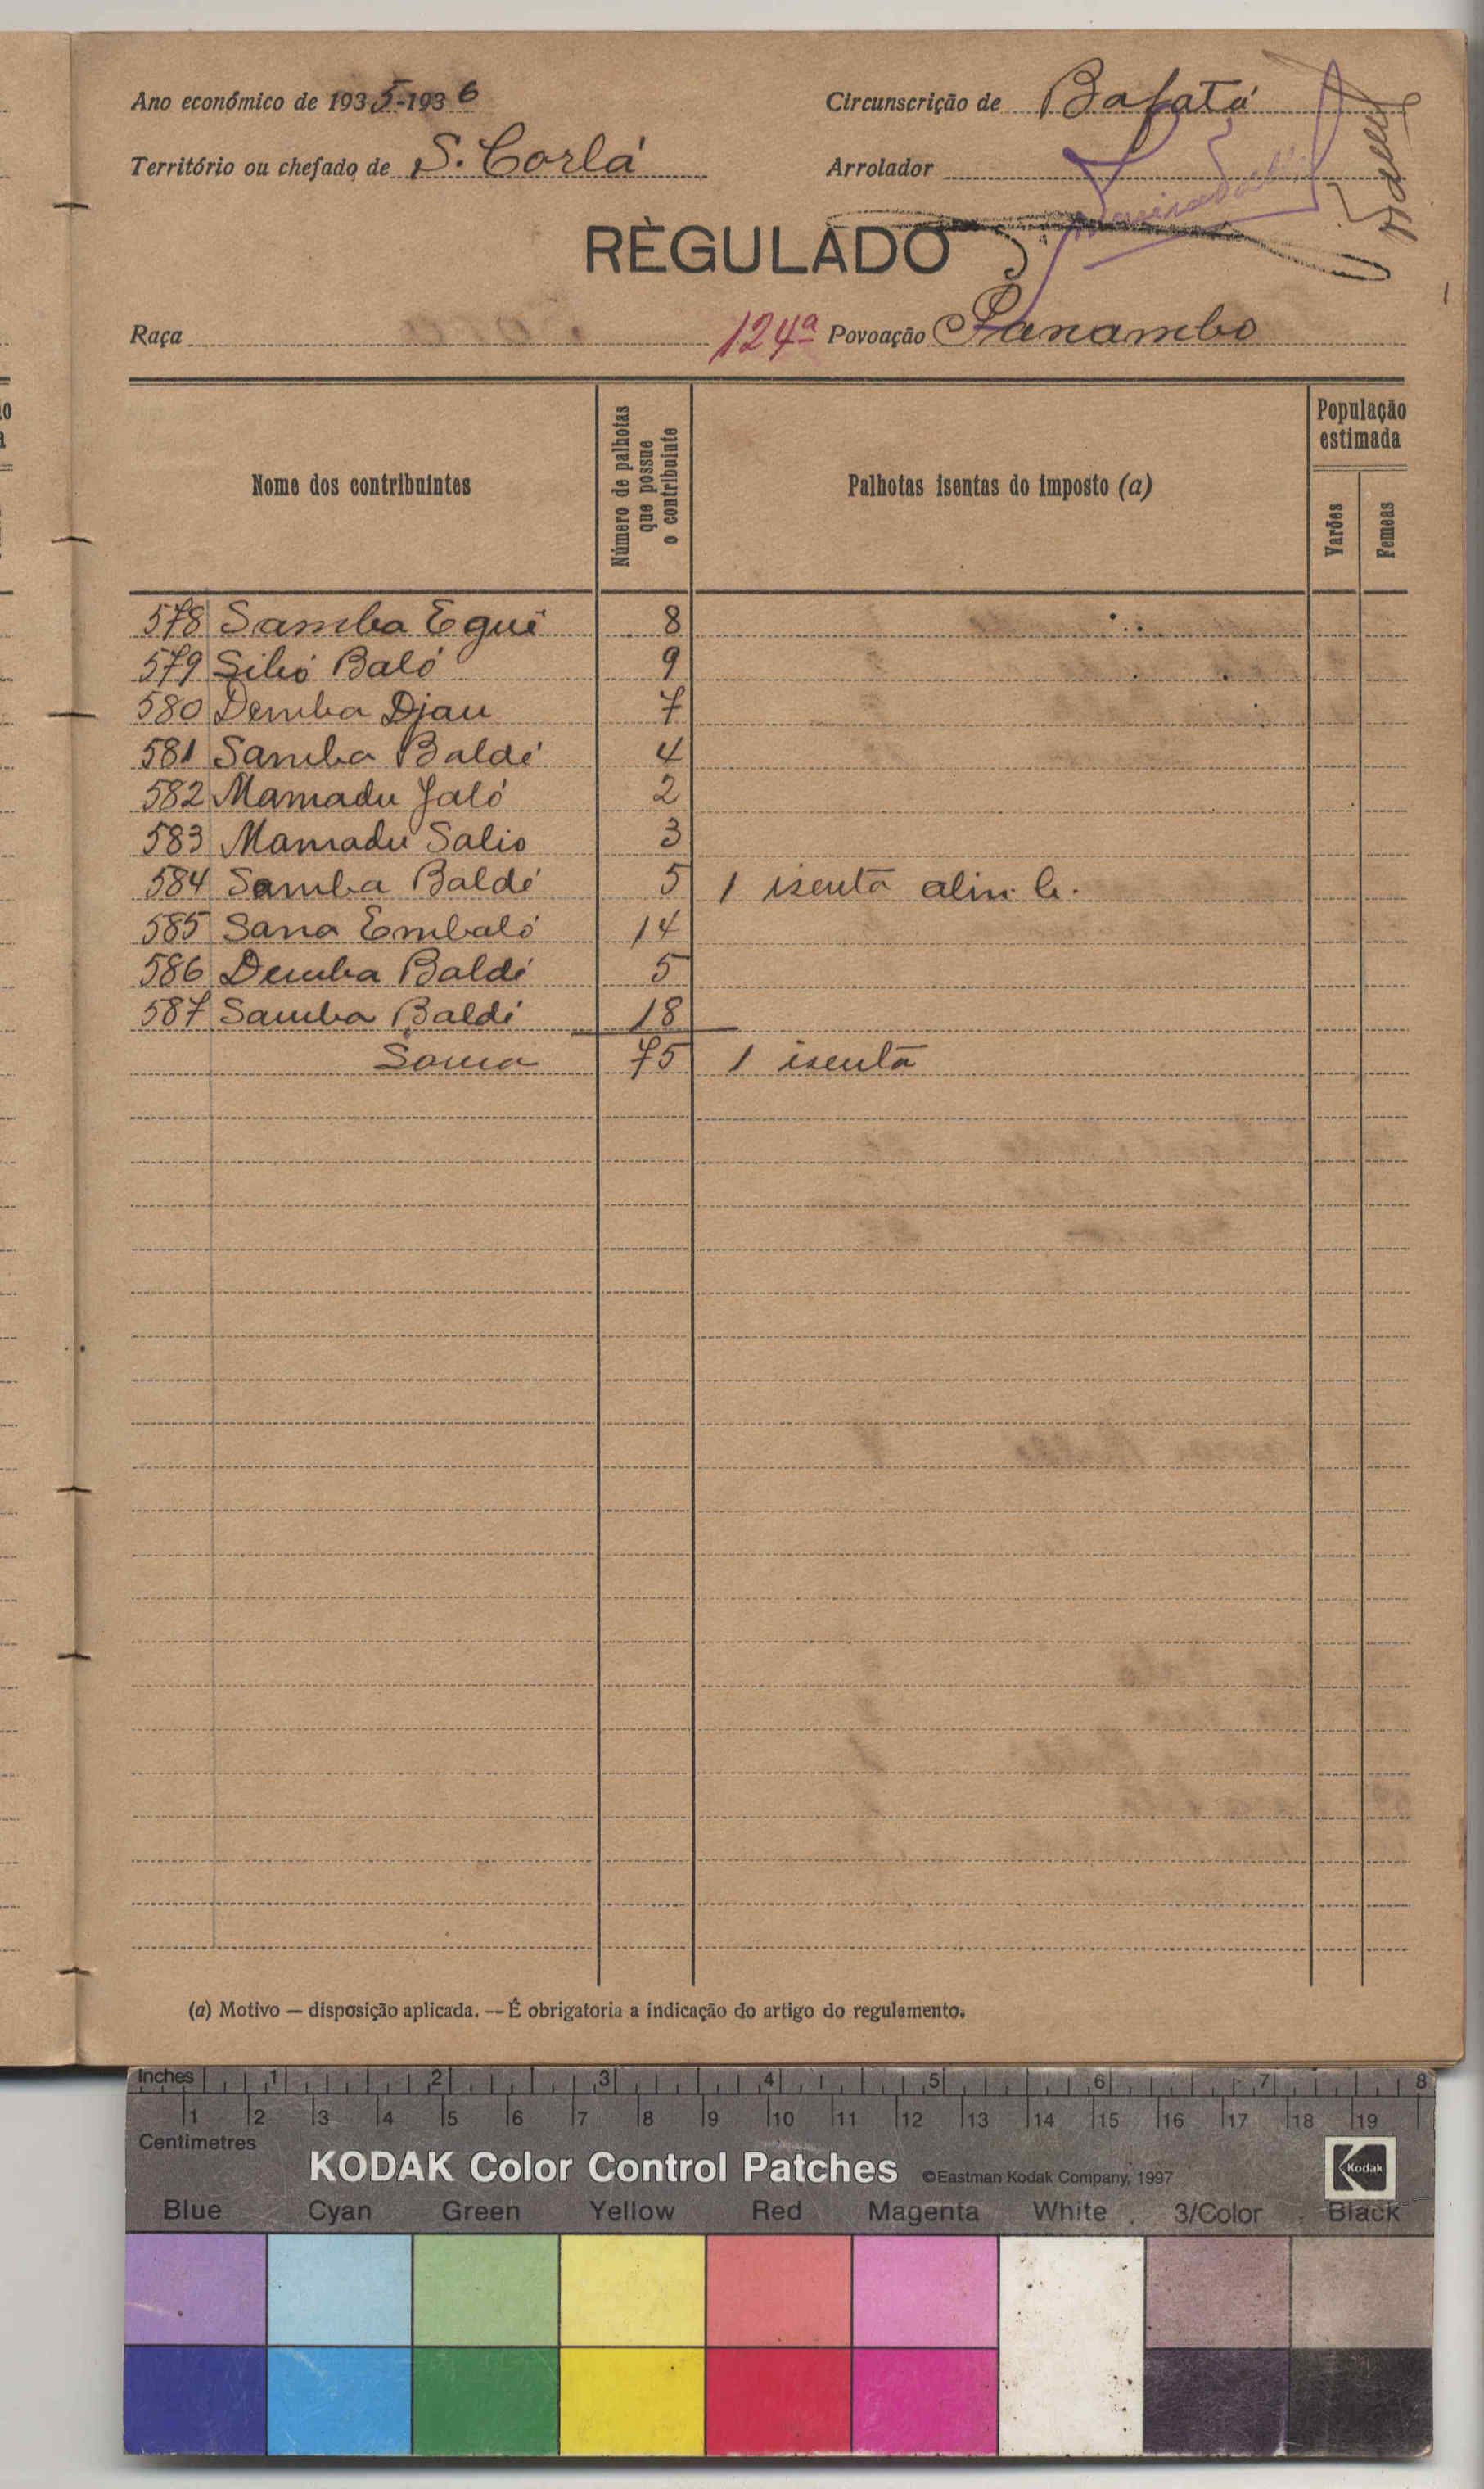 Ano económico de 1935-1936
Circunscrição de Bafatá
Território ou chefado de S. Corlá
Arrolador
RÉGULADO
Raça
124ª Povoação Panambo
Nome dos contribuintes
Número de palhotas que possue o contribuinte
Palhotas isentas do imposto (a)
População estimada
Varões
Femeas
578 Samba Egué 8
579 Silió Baló 9
580 Demba Djau 7
581 Samba Baldé 4
582 Mamadu Jaló 2
583 Mamadu Salio 3
584 Samba Baldé 5 1 isenta alin. b.
585 Sana Embaló 14
586 Demba Baldé 5
587 Samba Baldé 18
Soma 75 1 isenta
(a) Motivo — disposição aplicada. — É obrigatoria a indicação do artigo do regulamento.
Inches 1 2 3 4 5 6 7 8
1 2 3 4 5 6 7 8 9 10 11 12 13 14 15 16 17 18 19
Centimetres
KODAK Color Control Patches ©Eastman Kodak Company, 1997 Kodak
Blue Cyan Green Yellow Red Magenta White 3/Color Black